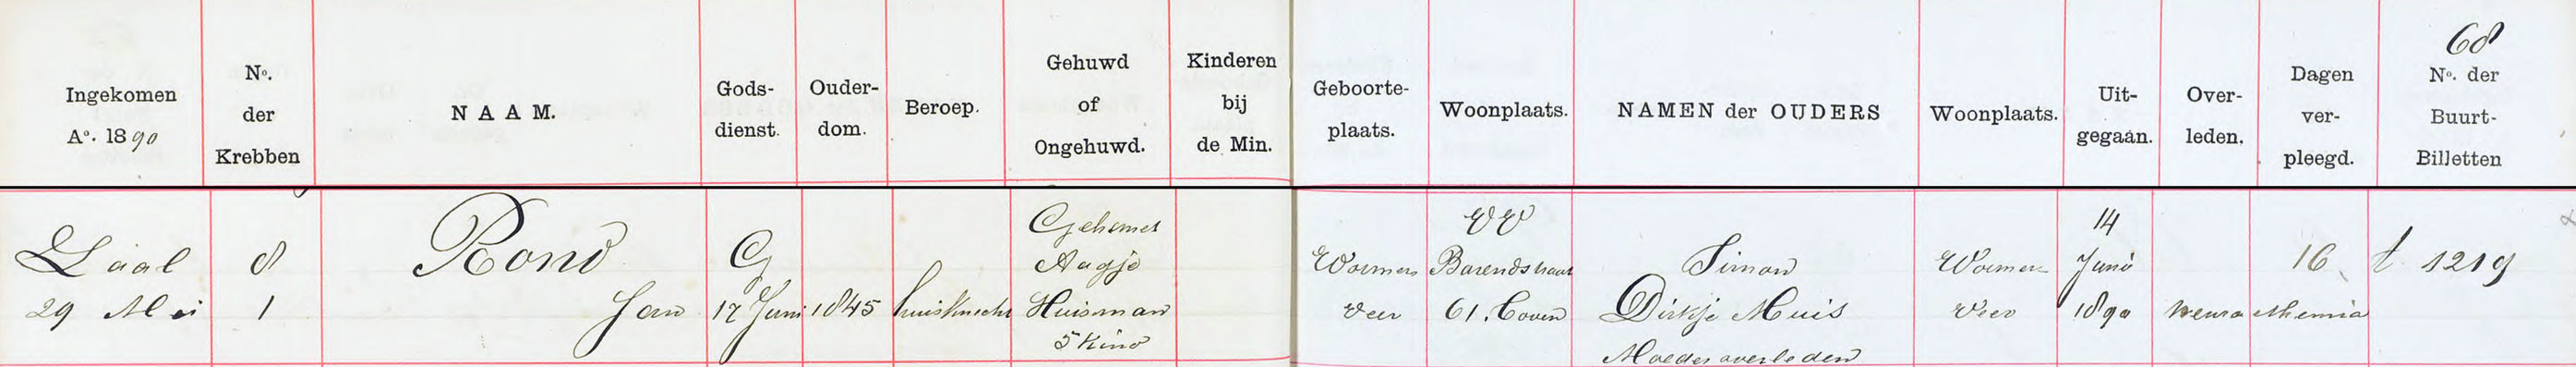 Ingekomen
Ao. 1890
No.
der
Krebben
NAAM.
Gods-
dienst.
Ouder-
dom.
Beroep.
Gehuwd
of
Ongehuwd.
Kinderen
bij
de Min.
Geboorte-
plaats.
Woonplaats.
NAMEN der OUDERS
Woonplaats.
Uit-
gegaan.
Over-
leden.
Dagen
ver-
pleegd.
68
No. der
Buurt-
Billetten
Zaal
29 Mei
8
1
Rond
Jan
G
17 Juni
1845
huisknecht
Gehuwd
Aagje
Huisman
5 Kind
Wormer
veer
VV
Barendstraat
61. boven
Simon
Dirkje Muis
Moeder overleden
Wormer
veer
14
Juni
1890
neurasthenia
16
t 1219